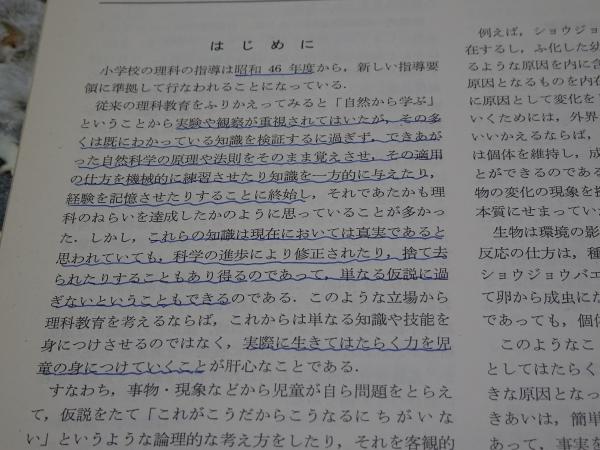 はじめに
小学校の理科の指導は昭和 46 年度から，新しい指導要
領に準拠して行なわれることになっている．
従来の理科教育をふりかえってみると「自然から学ぶ」
ということから実験や観察が重視されてはいたが，その多
くは既にわかっている知識を検証するに過ぎず，できあが
った自然科学の原理や法則をそのまま覚えさせ，その適用
の仕方を機械的に練習させたり知識を一方的に与えたり，
経験を記憶させたりすることに終始し，それであたかも理
科のねらいを達成したかのように思っていることが多かっ
た．しかし，これらの知識は現在においては真実であると
思われていても，科学の進歩により修正されたり，捨て去
られたりすることもあり得るのであって，単なる仮説に過
ぎないということもできるのである．このような立場から
理科教育を考えるならば，これからは単なる知識や技能を
身につけさせるのではなく，実際に生きてはたらく力を児
童の身につけていくことが肝心なことである．
すなわち，事物・現象などから児童が自ら問題をとらえ
て，仮説をたて「これがこうだからこうなるにちがいな
い」というような論理的な考え方をしたり，それを客観的
例えば，ショウジョ
在するし，ふ化した幼
るような原因を内に含
原因となるものを内在
に原因として変化を
いくためには，外界
いいかえるならば，
は個体を維持し，成
とができるのである
物の変化の現象を
本質にせまってい
生物は環境の影
反応の仕方は，種
ショウジョウバエ
て卵から成虫にな
であっても，個体
このようなこ
としてはたらく
きな原因となっ
きあいは，簡単
あって，事実を